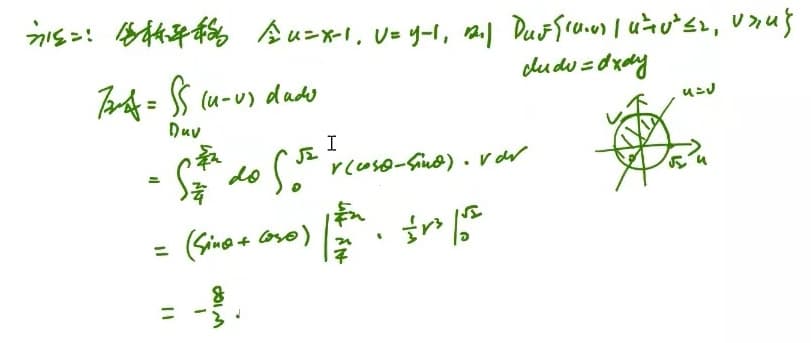 方法二: 坐标平移 令u=x-1, v=y-1, 则 Duv={(u,v) | u²+v²≤2, v≥u}
dudv=dxdy
原式 = ∬_{Duv} (u-v) dudv
u=v
v
√2 u
= ∫_{π/4}^{5/4 π} dθ ∫_0^{√2} r(cosθ-sinθ)·r dr
= (sinθ+cosθ) |_{π/4}^{5/4 π} · 1/3 r³ |_0^{√2}
= -8/3.